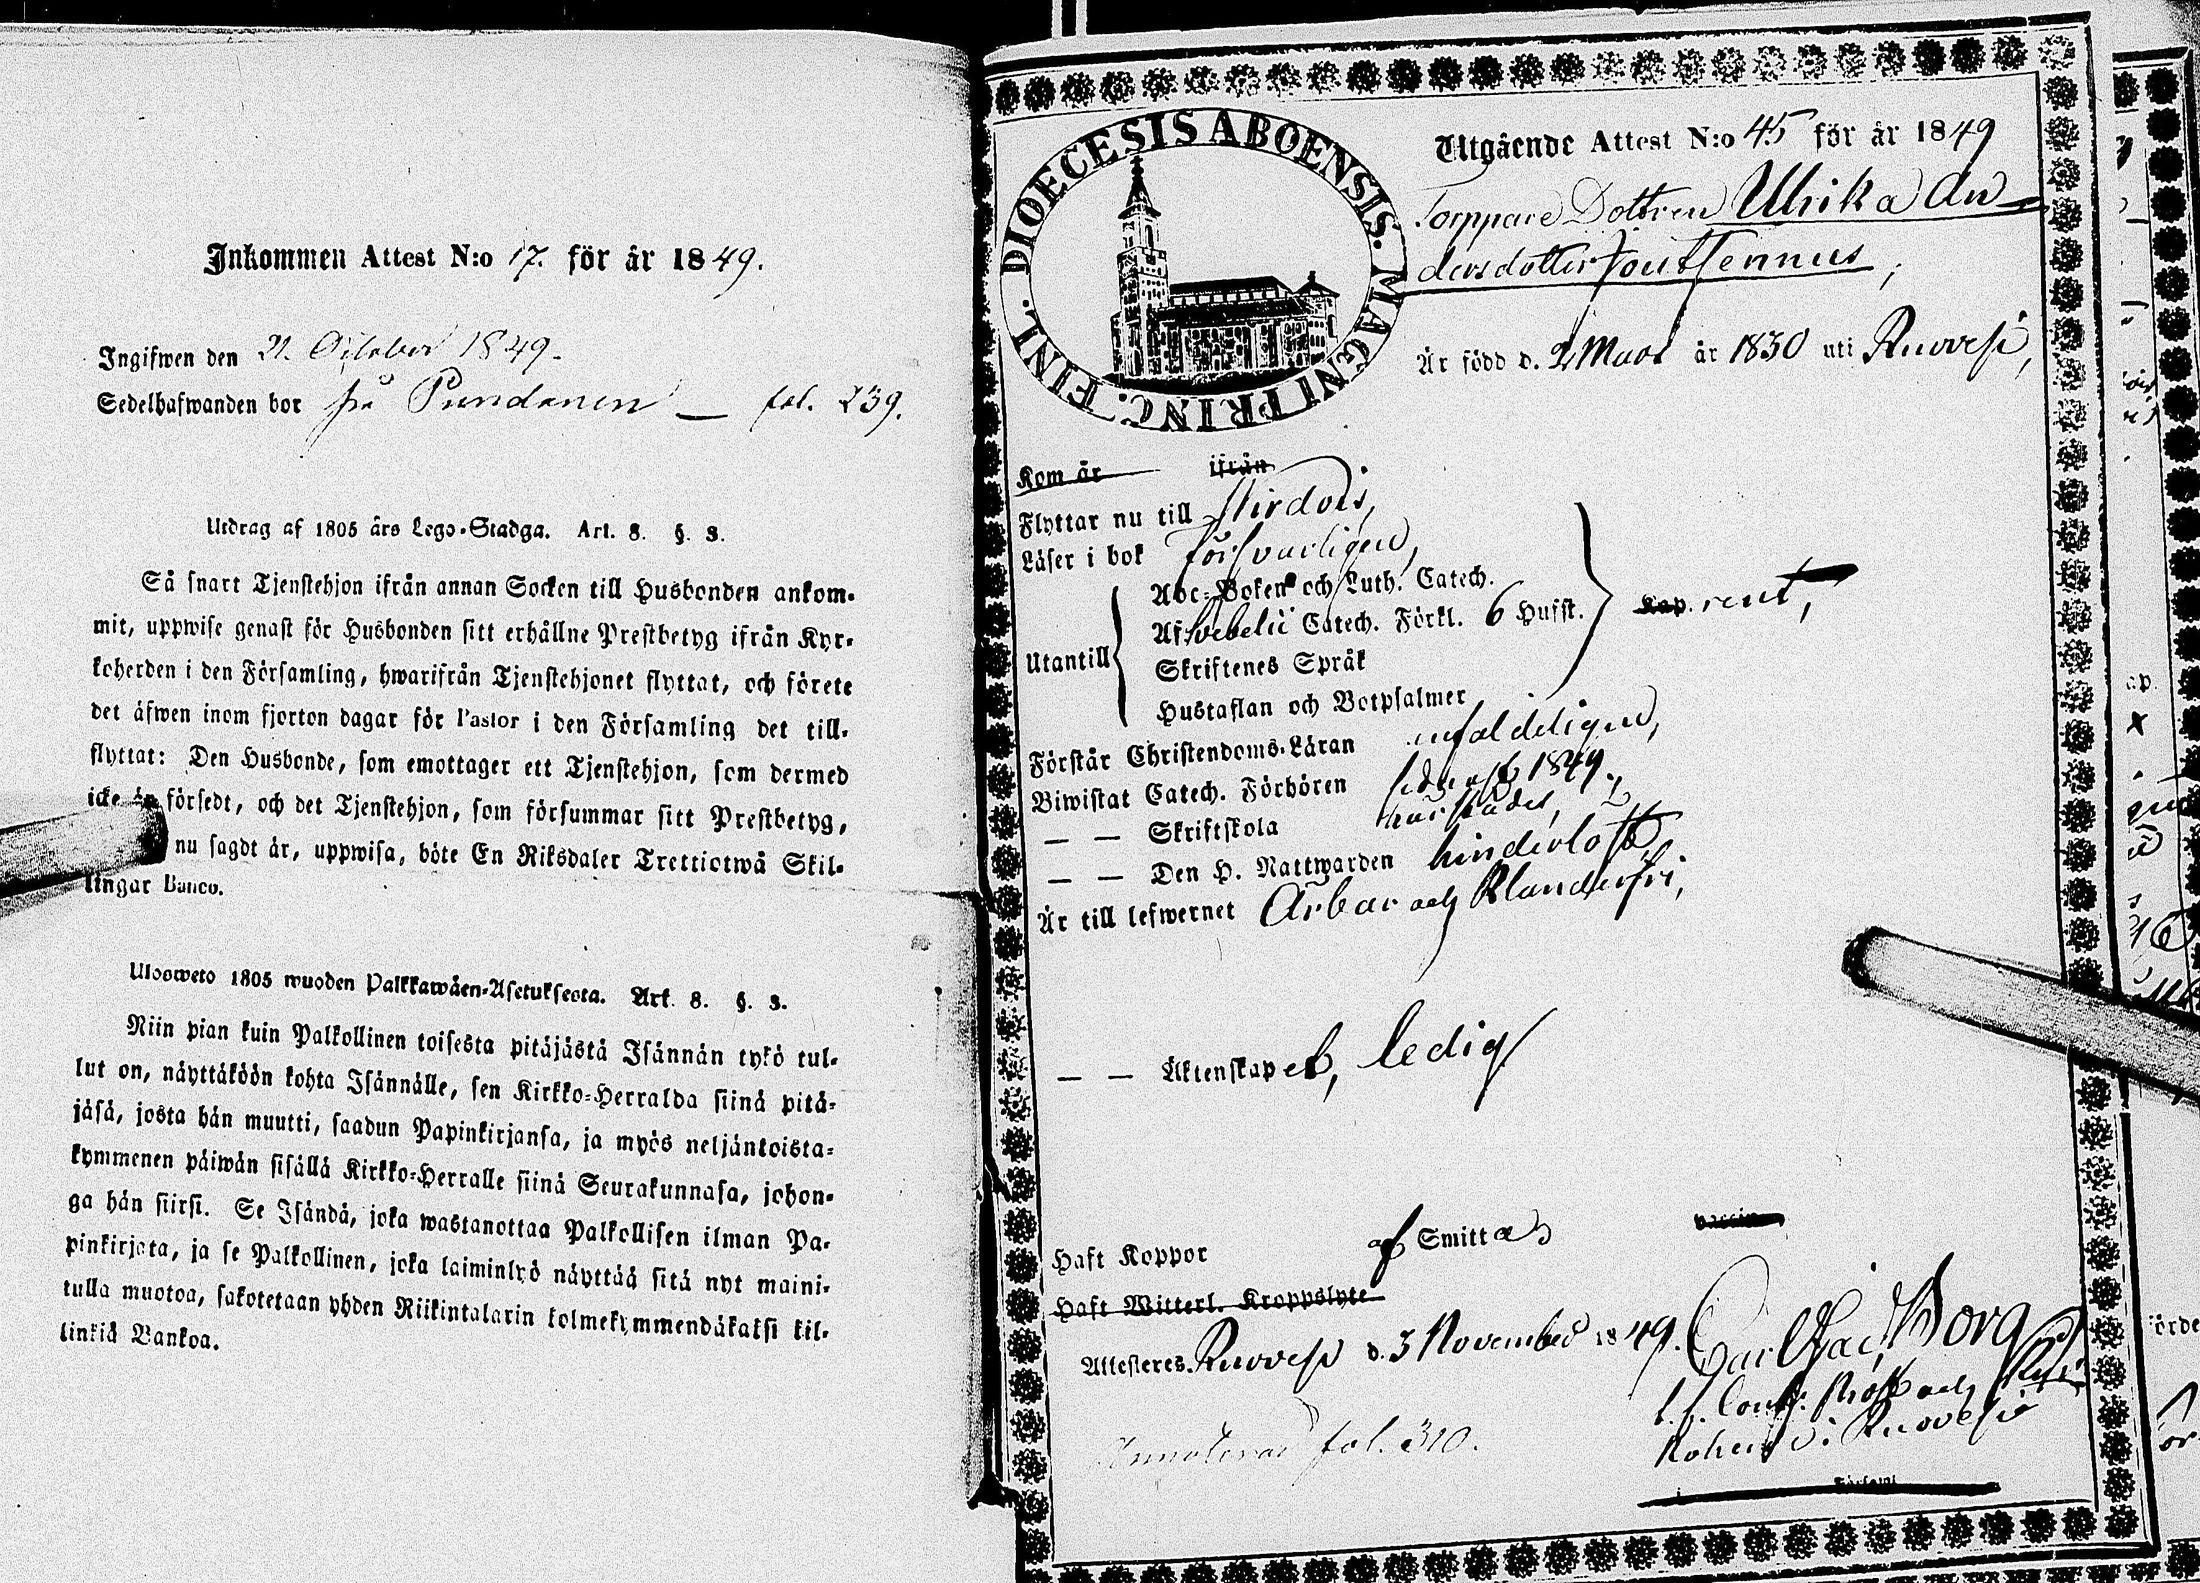 Inkommen Attest N:o 17. för år 1849.
Ingifwen den 21. October 1849.
Sedelhafwanden bor på Pundanen — fol. 239.
Utdrag af 1805 års Lego-Stadga. Art. 8. §. 3.
Så snart Tjenstehjon ifrån annan Socken till Husbonden ankom-
mit, uppwise genast för Husbonden sitt erhållne Prestbetyg ifrån Kyr-
koherden i den Församling, hwarifrån Tjenstehjonet flyttat, och förete
det äfwen inom fjorton dagar för Pastor i den Församling det till-
flyttat: Den Husbonde, som emottager ett Tjenstehjon, som dermed
icke är försedt, och det Tjenstehjon, som försummar sitt Prestbetyg,
nu sagdt är, uppwisa, böte En Riksdaler Trettiotwå Skil-
lingar Banco.
Ulosweto 1805 wuoden Palkkawäen-Asetuksesta. Art. 8. §. 3.
Niin pian kuin Palkollinen toisesta pitäjästä Isännän tykö tul-
lut on, näyttäköön kohta Isännälle, sen Kirkko-Herralda siinä pitä-
jäsä, josta hän muutti, saadun Papinkirjansa, ja myös neljäntoista-
kymmenen päiwän sisällä Kirkko-Herralle siinä Seurakunnasa, johon-
ga hän siirsi. Se Isändä, joka wastanottaa Palkollisen ilman Pa-
pinkirjata, ja se Palkollinen, joka laiminlyö näyttää sitä nyt maini-
tulla muotoa, sakotetaan yhden Riikintalarin kolmekymmendäkaksi kil-
linkiä Bankoa.
DIOECESIS ABOENSIS. MAGNI PRINC. FINL.
Utgående Attest N:o 45 för år 1849
Torppare Dottren Ulrika An-
dersdotter Jouttennus,
Är född d. 2 Mars år 1830 uti Ruovesi,
Kom år ifrån
Flyttar nu till Wirdois,
Läser i bok försvarligen,
Utantill
Abc-Boken och Luth. Catech.
Af Svebelii Catech. Förkl. 6 Hufst.
Skriftenes Språk
Hustaflan och Botpsalmer
Kap. rent,
Förstår Christendoms-Läran enfaldeligen,
Biwistat Catech. Förhören sednast 1849,
— — Skriftskola
— — Den H. Nattwarden hinderlöst
Är till lefwernet Ärbar och Klanderfri,
— — Äktenskapet, ledig
Haft Koppor af Smitta
Vaccin
Haft Witterl. Kroppslyte
Attesteras. Ruovesi d. 3 November 1849. Carl Isac Borg
t. f. Contr. Prost och
Koherd i Ruovesi
Annoterad fol. 310.
i Församl